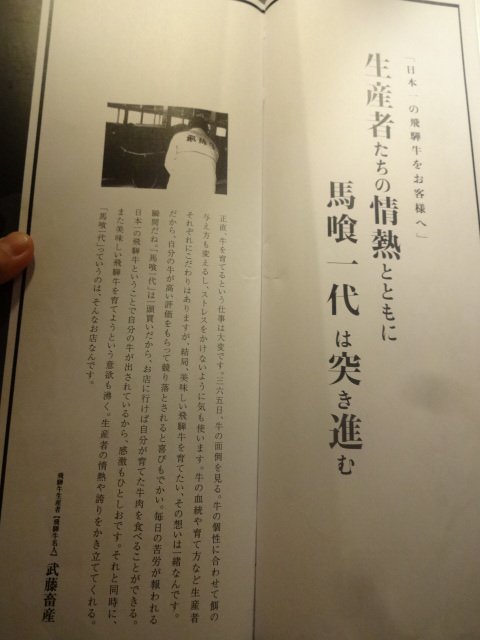 「日本一の飛騨牛をお客様へ」
生産者たちの情熱とともに
馬喰一代は突き進む
正直、牛を育てるという仕事は大変です。三六五日、牛の面倒を見る。牛の個性に合わせて餌の
与え方も変えるし、ストレスをかけないように気も使います。牛の血統や育て方など生産者
それぞれにこだわりはありますが、結局、美味しい飛騨牛を育てたい、その想いは一緒なんです。
だから、自分の牛が高い評価をもらって競り落とされると喜びもでかい。毎日の苦労が報われる
瞬間だね。「馬喰一代」は一頭買いだから、お店に行けば自分が育てた牛肉を食べることができる。
日本一の飛騨牛ということで自分の牛が出されているから、感激もひとしおです。それと同時に、
また美味しい飛騨牛を育てようという意欲も湧く。生産者の情熱や誇りをかき立ててくれる。
「馬喰一代」っていうのは、そんなお店なんです。
飛騨牛生産者【飛騨牛名人】 武藤畜産